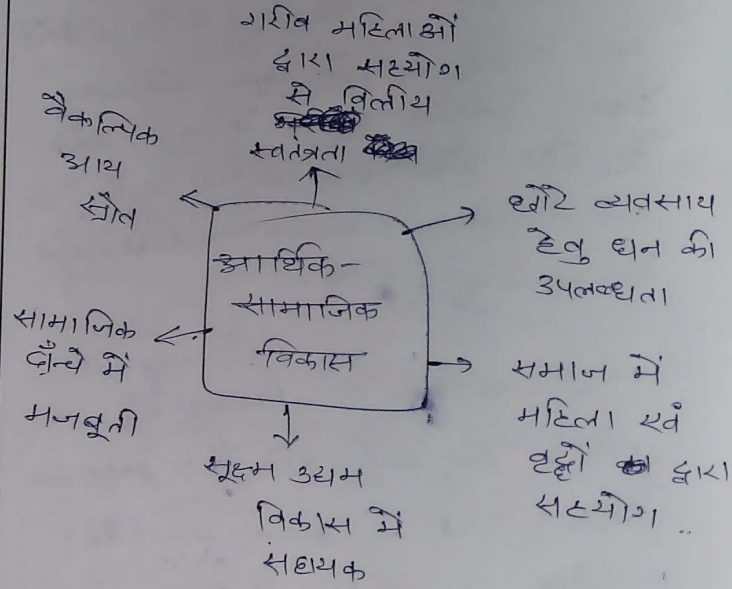 गरीब महिलाओं
द्वारा सहयोग
से वित्तीय
स्वतंत्रता
वैकल्पिक
आय
स्रोत
छोटे व्यवसाय
हेतु धन की
उपलब्धता
आर्थिक-
सामाजिक
विकास
सामाजिक
ढाँचे में
मजबूती
समाज में
महिला एवं
वृद्धों द्वारा
सहयोग
सूक्ष्म उद्यम
विकास में
सहायक